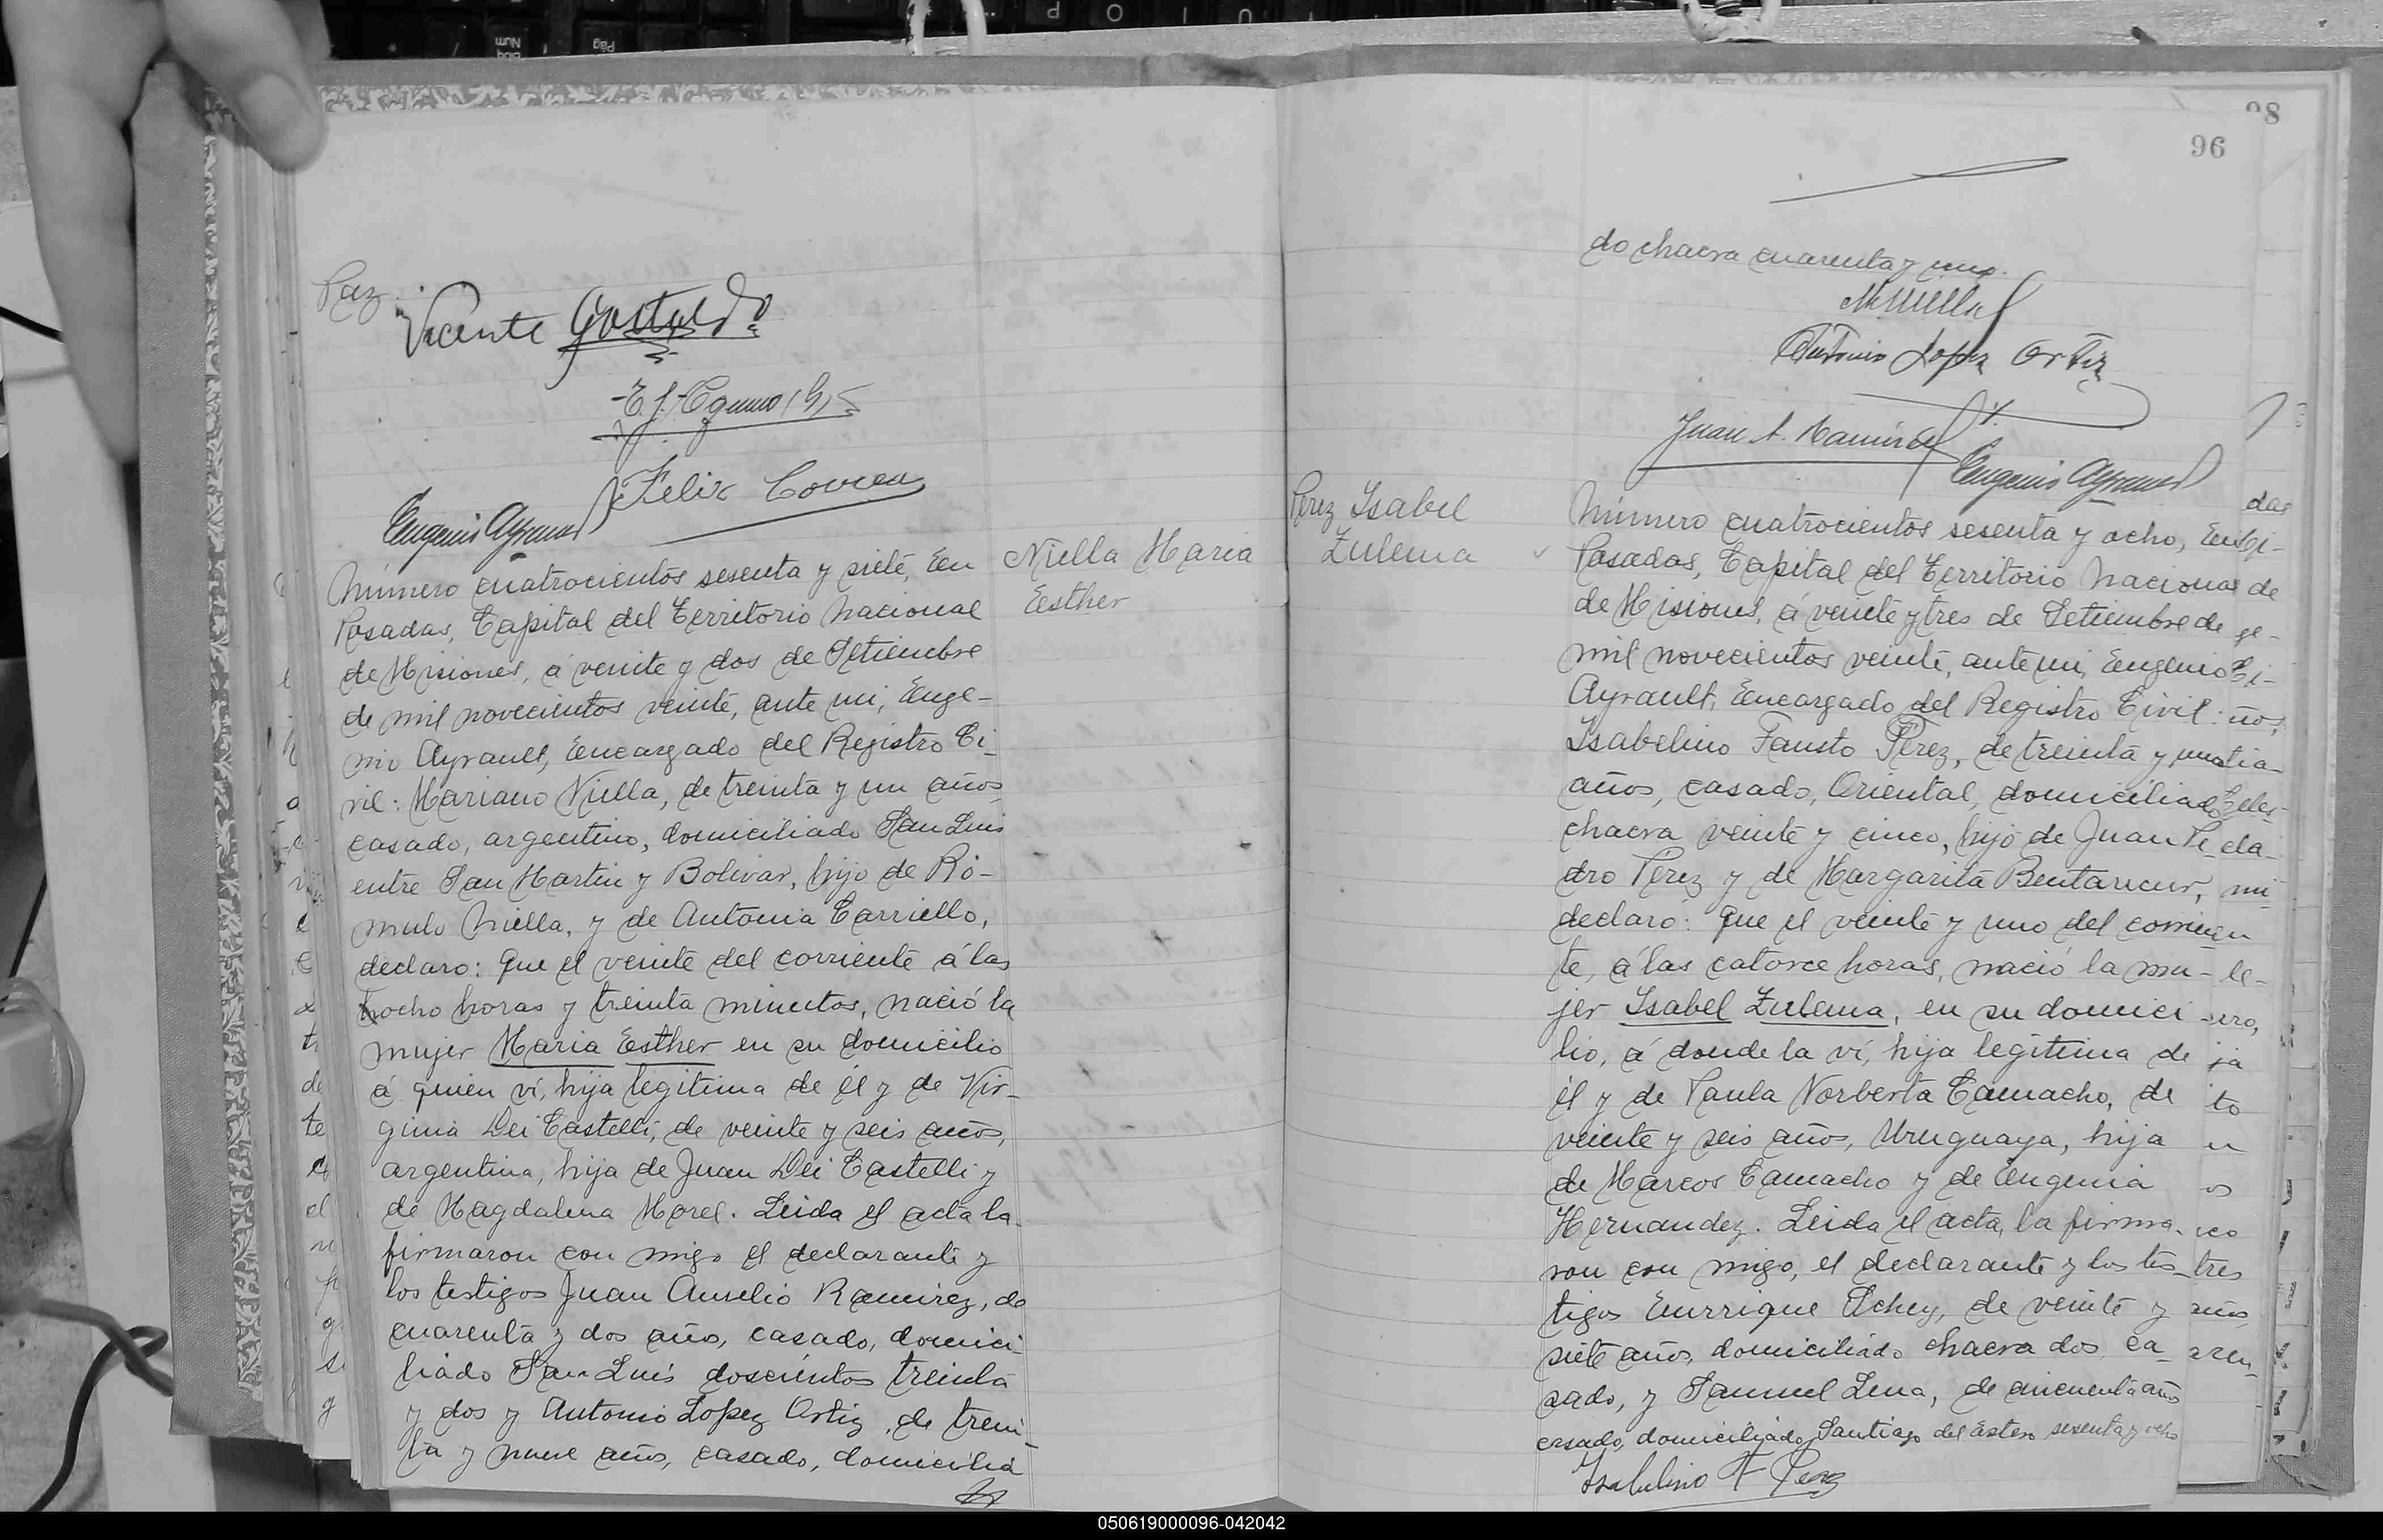 Paz.
Vicente Gostoldo
Felix Correa
Eugenio Ayrault
Niella Maria
Esther
Número cuatrocientos sesenta y siete, En
Posadas, Capital del Territorio Nacional
de Misiones, á veinte y dos de Setiembre
de mil novecientos veinte, ante mi, Euge-
nio Ayrault, Encargado del Registro Ci-
vil: Mariano Niella, de treinta y un años
casado, argentino, domiciliado San Luis
entre San Martin y Bolivar, hijo de Ró-
mulo Niella, y de Antonia Carriello,
declaro: Que el veinte del corriente á las
ocho horas y treinta minutos, nació la
mujer Maria Esther en su domicilio
á quien ví, hija legitima de él y de Vir-
ginia Dei Castelli, de veinte y seis años,
argentina, hija de Juan Dei Castelli y
de Magdalena Morel. Leida el acta la
firmaron con migo el declarante y
los testigos Juan Aurelio Ramirez, de
cuarenta y dos años, casado, domici-
liado San Luis doscientos treinta
y dos y Antonio Lopez Ortiz, de trein-
ta y nueve años, casado, domicilia
98
96
do chacra cuarenta y uno.
MNiella
Antonio Lopez Ortiz
Juan A. Ramirez
Eugenio Ayrault
Perez Isabel
Zulema
Número cuatrocientos sesenta y ocho, En
Posadas, Capital del Territorio Nacional
de Misiones, á veinte y tres de Setiembre de
mil novecientos veinte, ante mi, Eugenio
Ayrault, Encargado del Registro Civil:
Isabelino Fausto Perez, de treinta y un
años, casado, Oriental, domiciliado
chacra veinte y cinco, hijo de Juan Pe-
dro Perez y de Margarita Bentancur,
declaro: Que el veinte y uno del corrien
te, á las catorce horas, nació la mu-
jer Isabel Zulema, en su domici-
lio, á donde la ví, hija legitima de
él y de Paula Norberta Camacho, de
veinte y seis años, Uruguaya, hija
de Marcos Camacho y de Eugenia
Hernandez. Leida el acta, la firma-
ron con migo, el declarante y los tes-
tigos Enrrique Elchey, de veinte y
siete años, domiciliado chacra dos ca-
sado, y Samuel Lena, de cincuenta años
casado, domiciliado Santiago del Estero sesenta y ocho
Isabelino F Perez
050619000096-042042